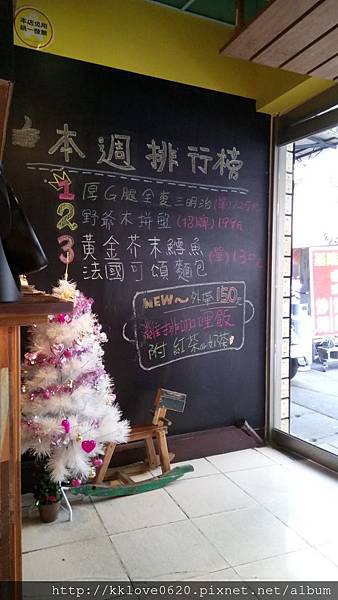 本店免用
統一發票
本週排行榜
1 厚G腿全麥三明治(單)125元
2 野爺木拼盤(招牌)199元
3 黃金芥末鱈魚
法國可頌麵包(單)130元
NEW～外帶150元
雞排咖哩飯
附 紅茶or奶茶
http://kklove0620.pixnet.net/album